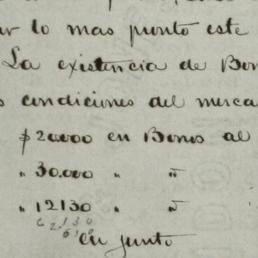 ar lo mas pronto este
La existencia de Bon
s condiciones del merca
$20.000 en Bonos al
" 30.000 " "
" 12130 " "
en junto